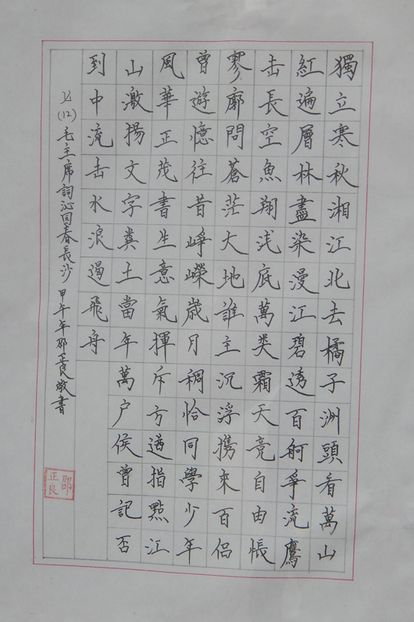 獨立寒秋湘江北去橘子洲頭看萬山
紅遍層林盡染漫江碧透百舸爭流鷹
击長空魚翔浅底萬類霜天竞自由悵
寥廓問蒼茫大地誰主沉浮攜來百侣
曾遊憶往昔崢嶸歲月稠恰同學少年
風華正茂書生意氣揮斥方遒指點江
山激揚文字糞土當年萬户侯曾記否
到中流击水浪遏飛舟
(12)毛主席詞沁园春長沙 甲午年邵正良敬書
邵正良